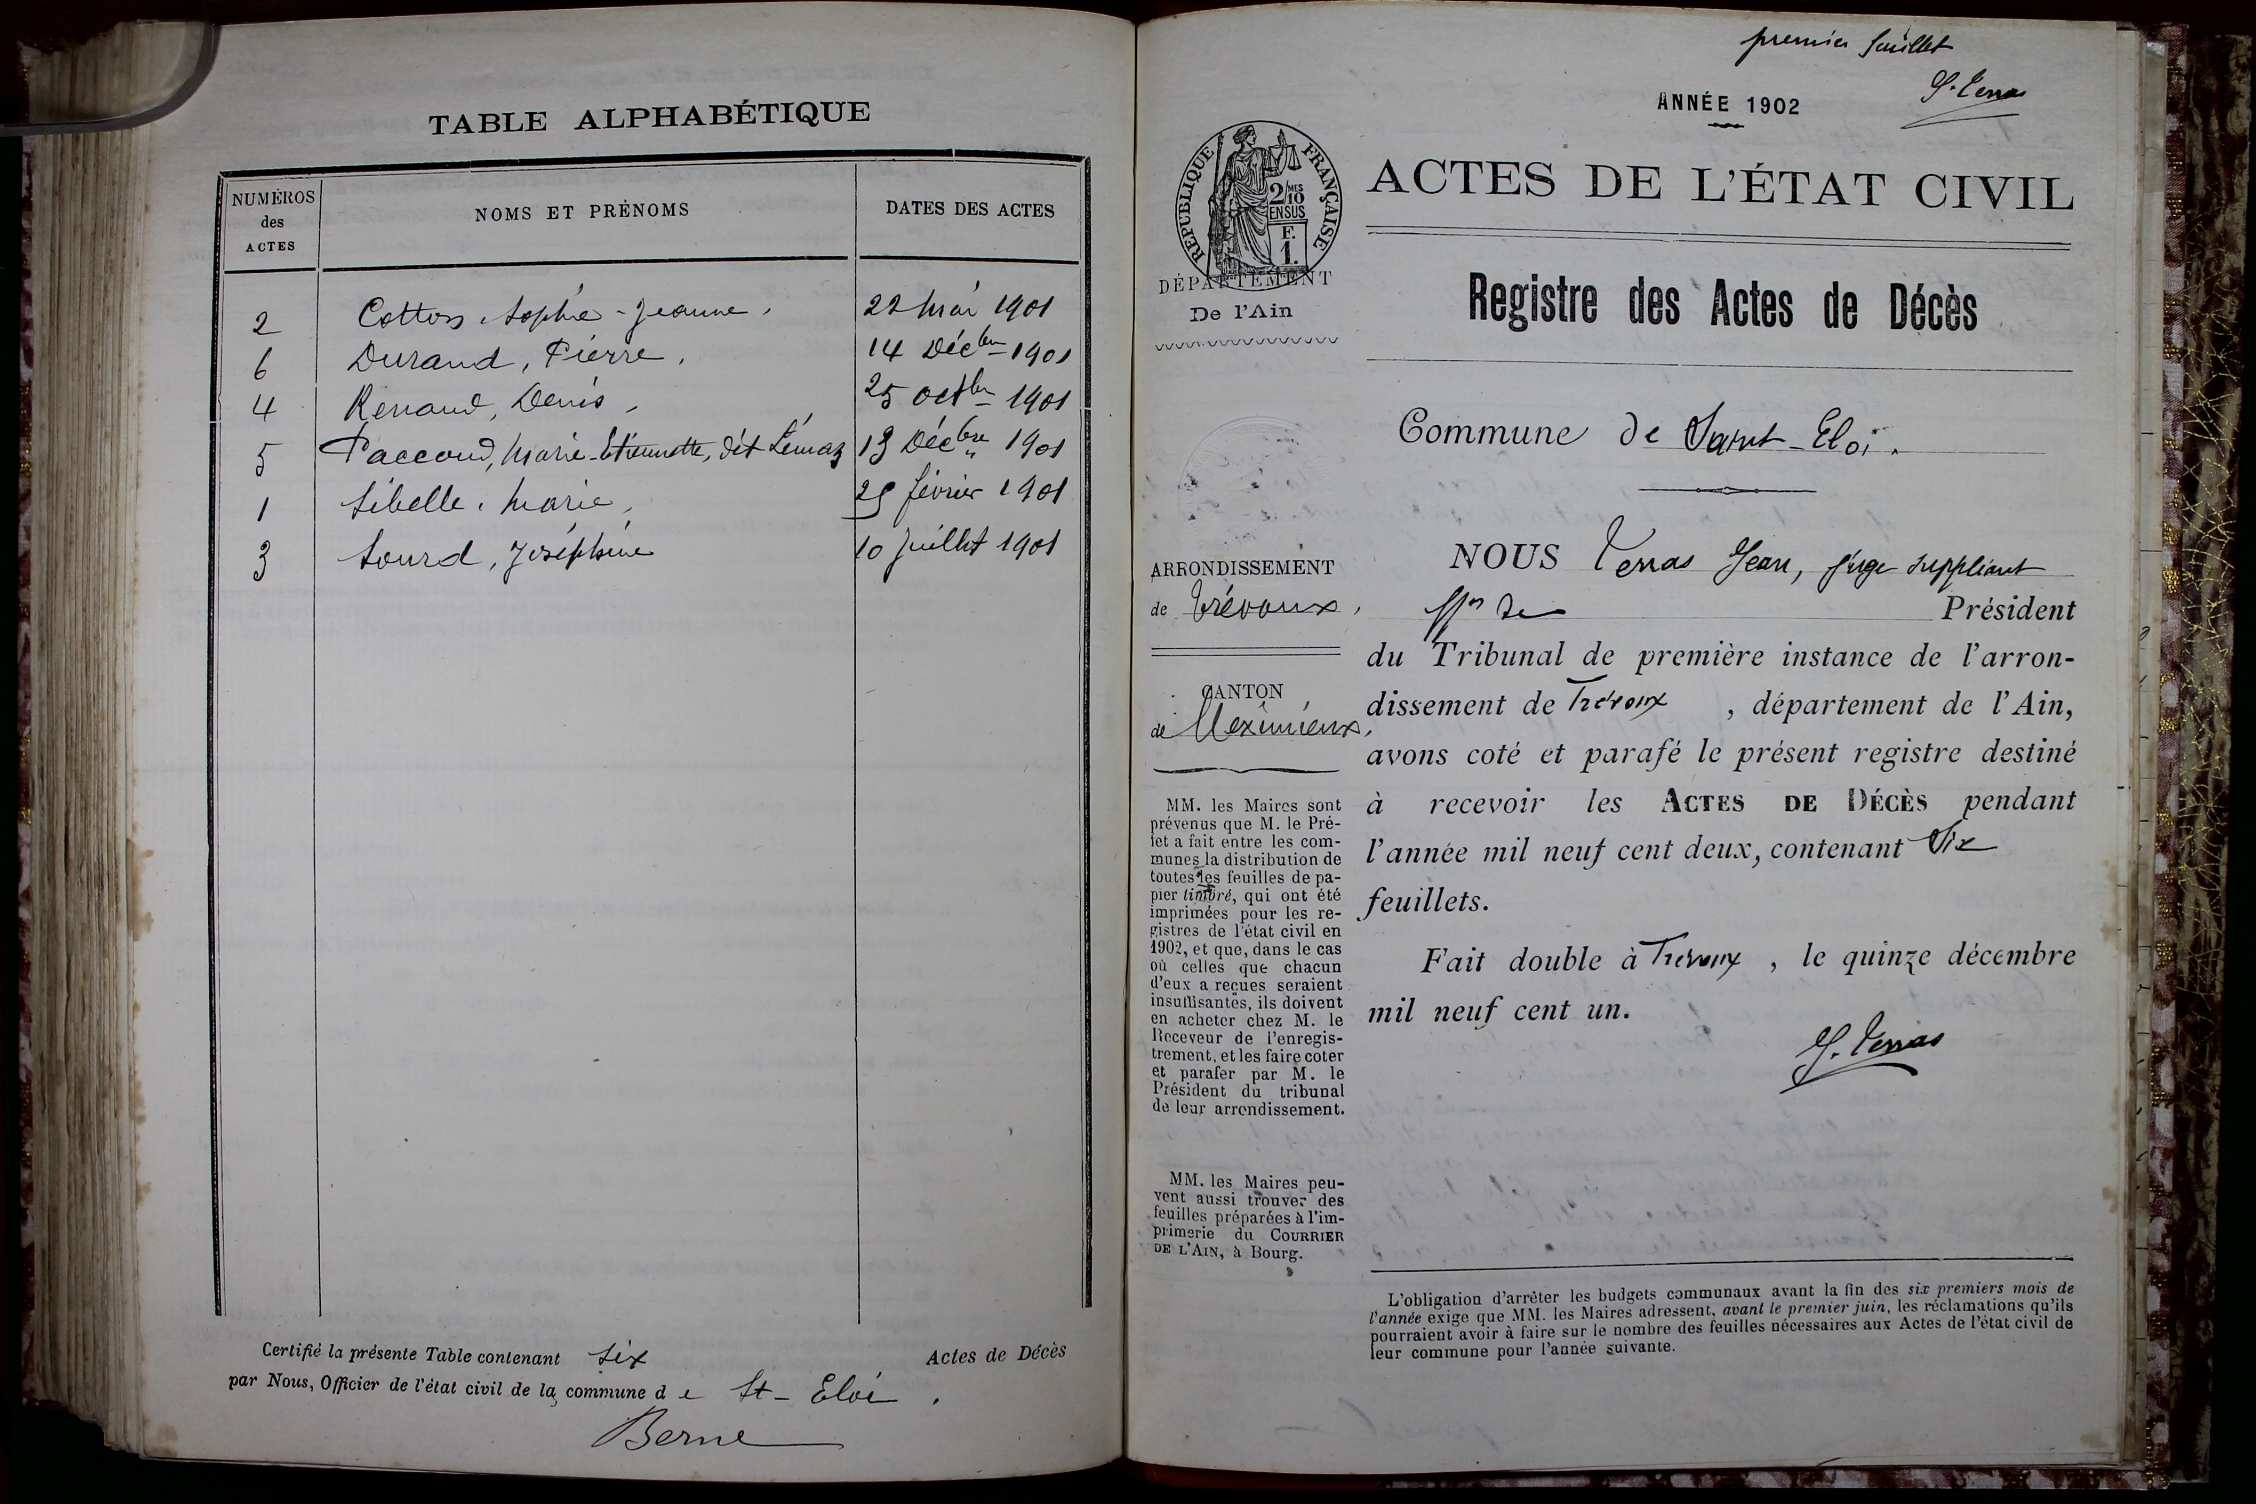 TABLE ALPHABÉTIQUE
NUMÉROS des ACTES
NOMS ET PRÉNOMS
DATES DES ACTES
2 Cotton Sophie-Jeanne, 22 Mai 1901
6 Durand, Pierre, 14 Décbre 1901
4 Renaud, Denis, 25 octbre 1901
5 Paccoud, Marie-Etiennette, dit Lémaz 13 Décbre 1901
1 Sibelle, Marie, 25 février 1901
3 Sourd, Joséphine 10 juillet 1901
Certifié la présente Table contenant six Actes de Décès
par Nous, Officier de l'état civil de la commune de St-Eloi.
Berne
premier feuillet
J. Terras
ANNÉE 1902
RÉPUBLIQUE FRANÇAISE
2/10MES
EN SUS
F.
1.
DÉPARTEMENT
De l'Ain
ARRONDISSEMENT
de Trévoux,
CANTON
de Meximieux,
MM. les Maires sont
prévenus que M. le Pré-
fet a fait entre les com-
munes la distribution de
toutes les feuilles de pa-
pier timbré, qui ont été
imprimées pour les re-
gistres de l'état civil en
1902, et que, dans le cas
où celles que chacun
d'eux a reçues seraient
insuffisantes, ils doivent
en acheter chez M. le
Receveur de l'enregis-
trement, et les faire coter
et parafer par M. le
Président du tribunal
de leur arrondissement.
MM. les Maires peu-
vent aussi trouver des
feuilles préparées à l'im-
primerie du COURRIER
DE L'AIN, à Bourg.
ACTES DE L'ÉTAT CIVIL
Registre des Actes de Décès
Commune de Saint-Eloi.
NOUS Terras Jean, juge suppléant
ffon de Président
du Tribunal de première instance de l'arron-
dissement de Trévoux, département de l'Ain,
avons coté et parafé le présent registre destiné
à recevoir les ACTES DE DÉCÈS pendant
l'année mil neuf cent deux, contenant Six
feuillets.
Fait double à Trévoux, le quinze décembre
mil neuf cent un.
J. Terras
L'obligation d'arrêter les budgets communaux avant la fin des six premiers mois de
l'année exige que MM. les Maires adressent, avant le premier juin, les réclamations qu'ils
pourraient avoir à faire sur le nombre des feuilles nécessaires aux Actes de l'état civil de
leur commune pour l'année suivante.